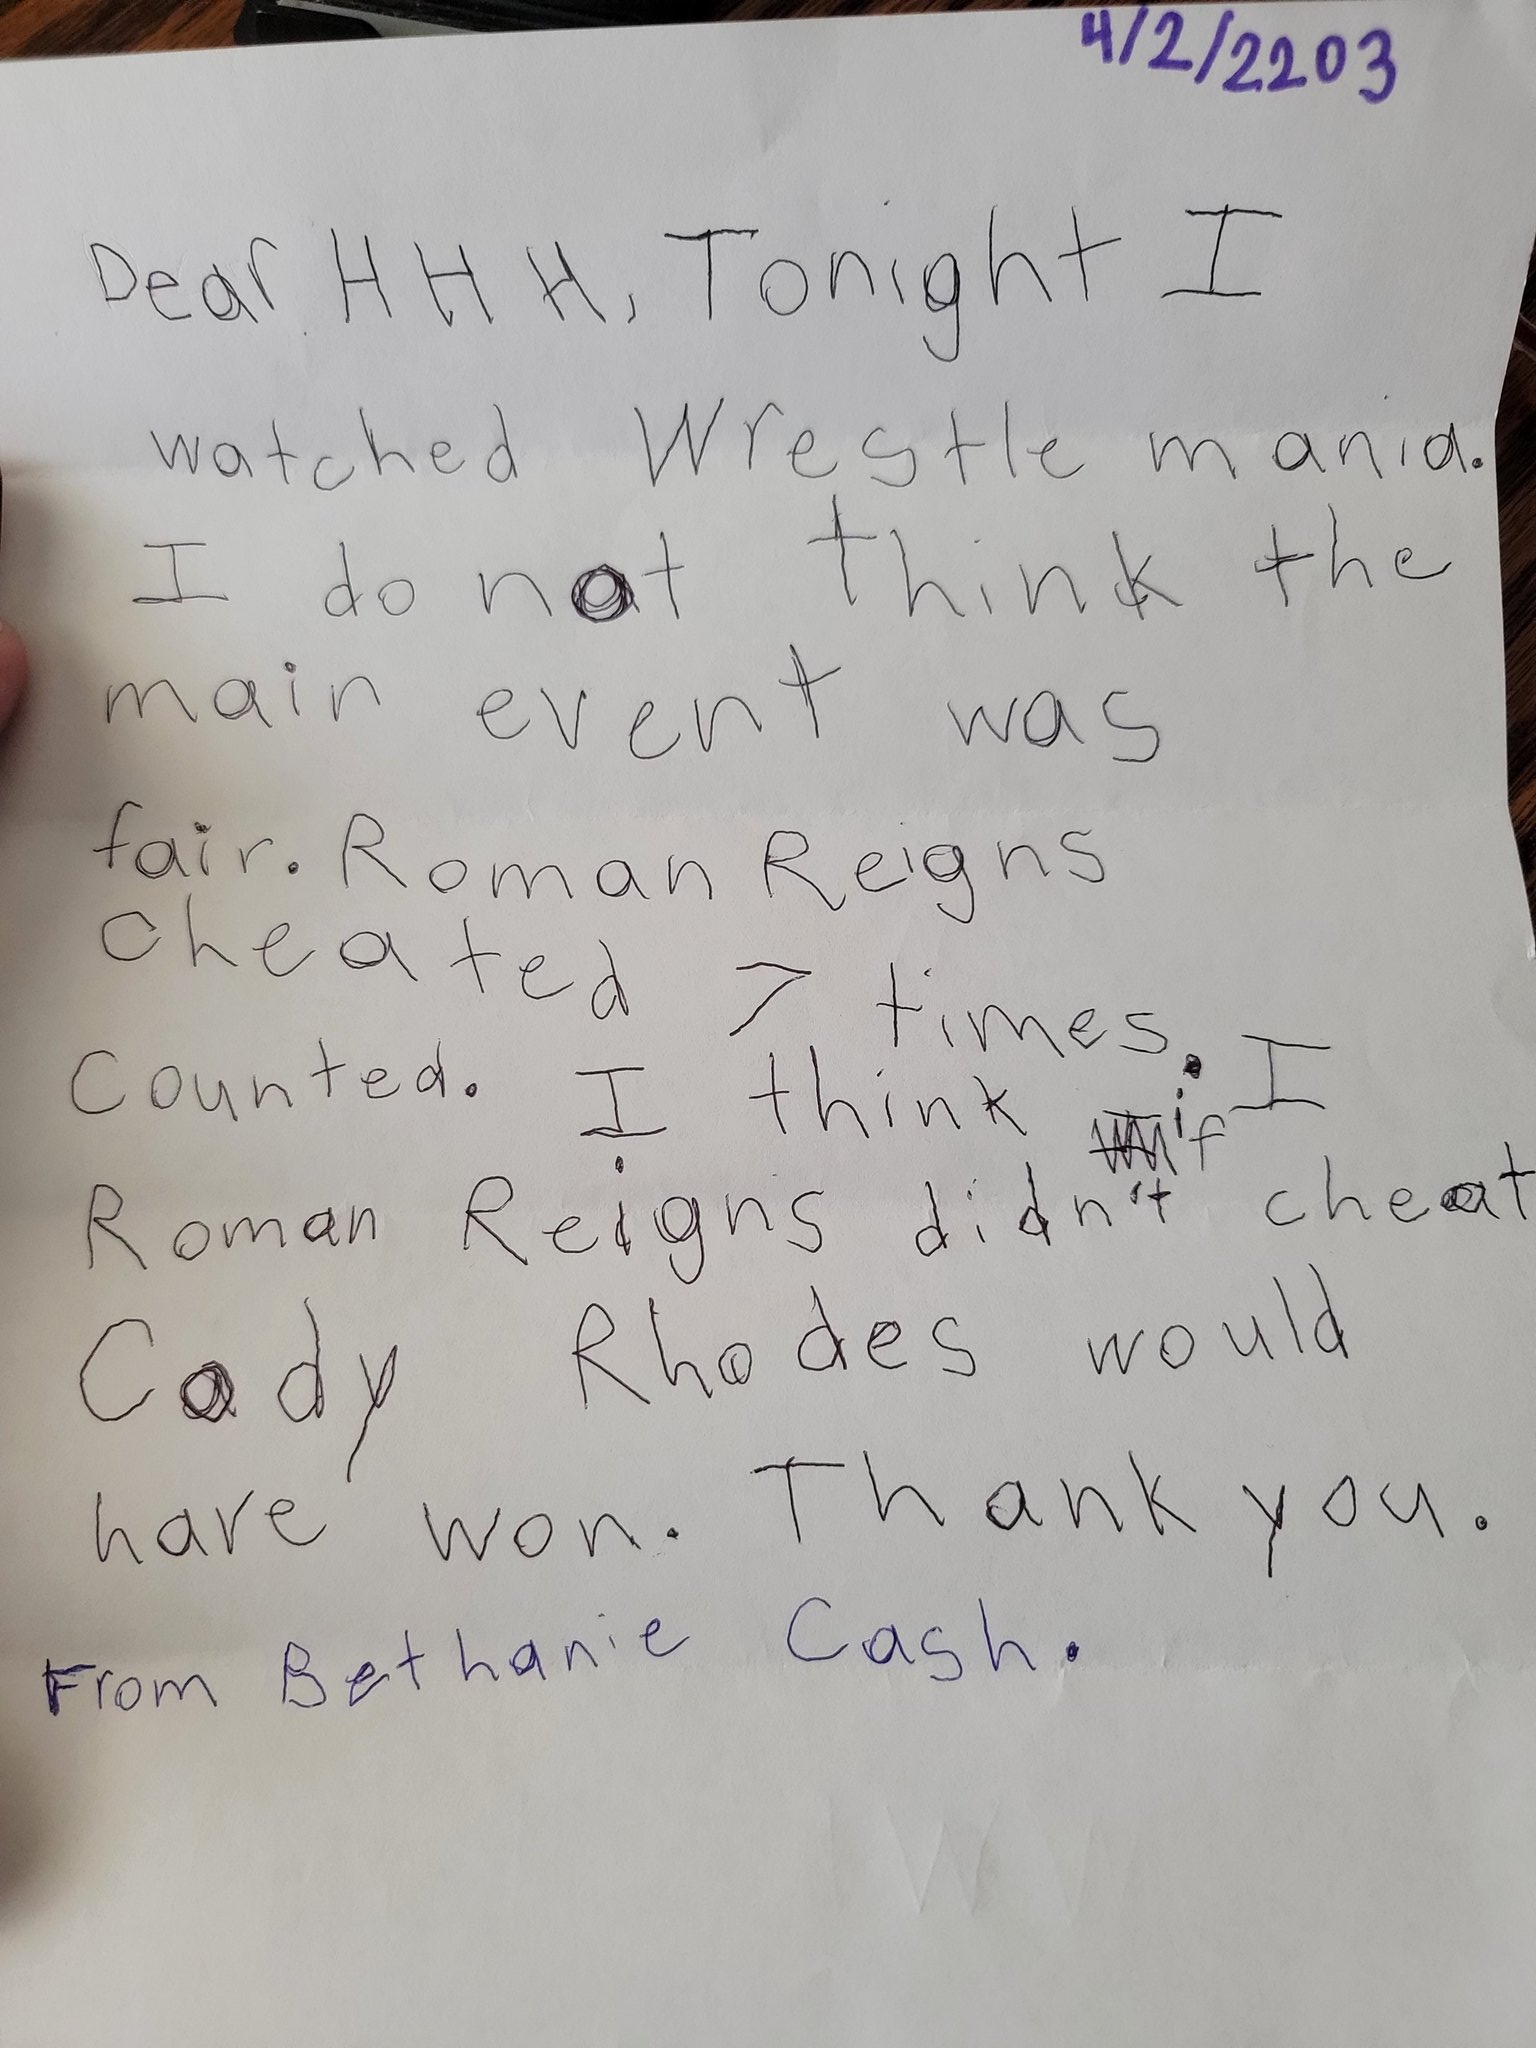 4/2/2203
Dear HHH, Tonight I
watched Wrestle mania.
I do not think the
main event was
fair. Roman Reigns
cheated 7 times. I
counted. I think if
Roman Reigns didn't cheat
Cody Rhodes would
have won. Thank you.
From Bethanie Cash.